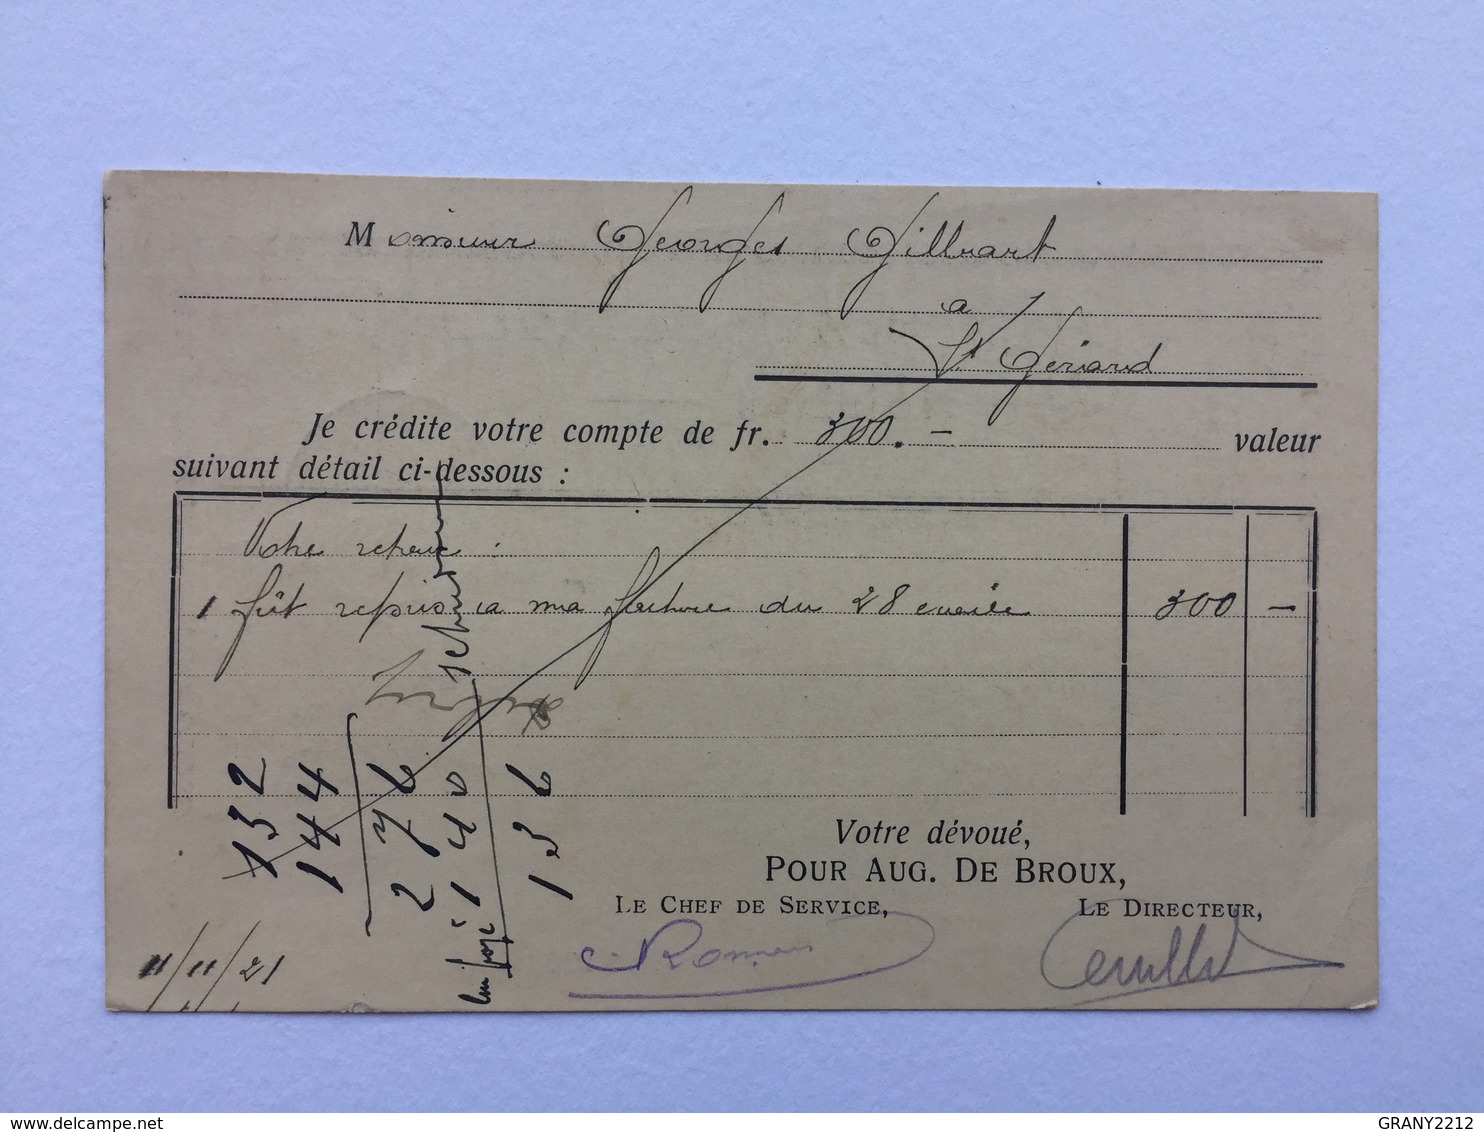 Monsieur Georges Gilbart
a
St Gérard
Je crédite votre compte de fr. 300.- valeur
suivant détail ci-dessous :
Votre retour :
1 fût repris a ma facture du 28 300 -
132
144
276
140
136
11/11/21
Votre dévoué,
POUR AUG. DE BROUX,
LE CHEF DE SERVICE, LE DIRECTEUR,
GRANY2212